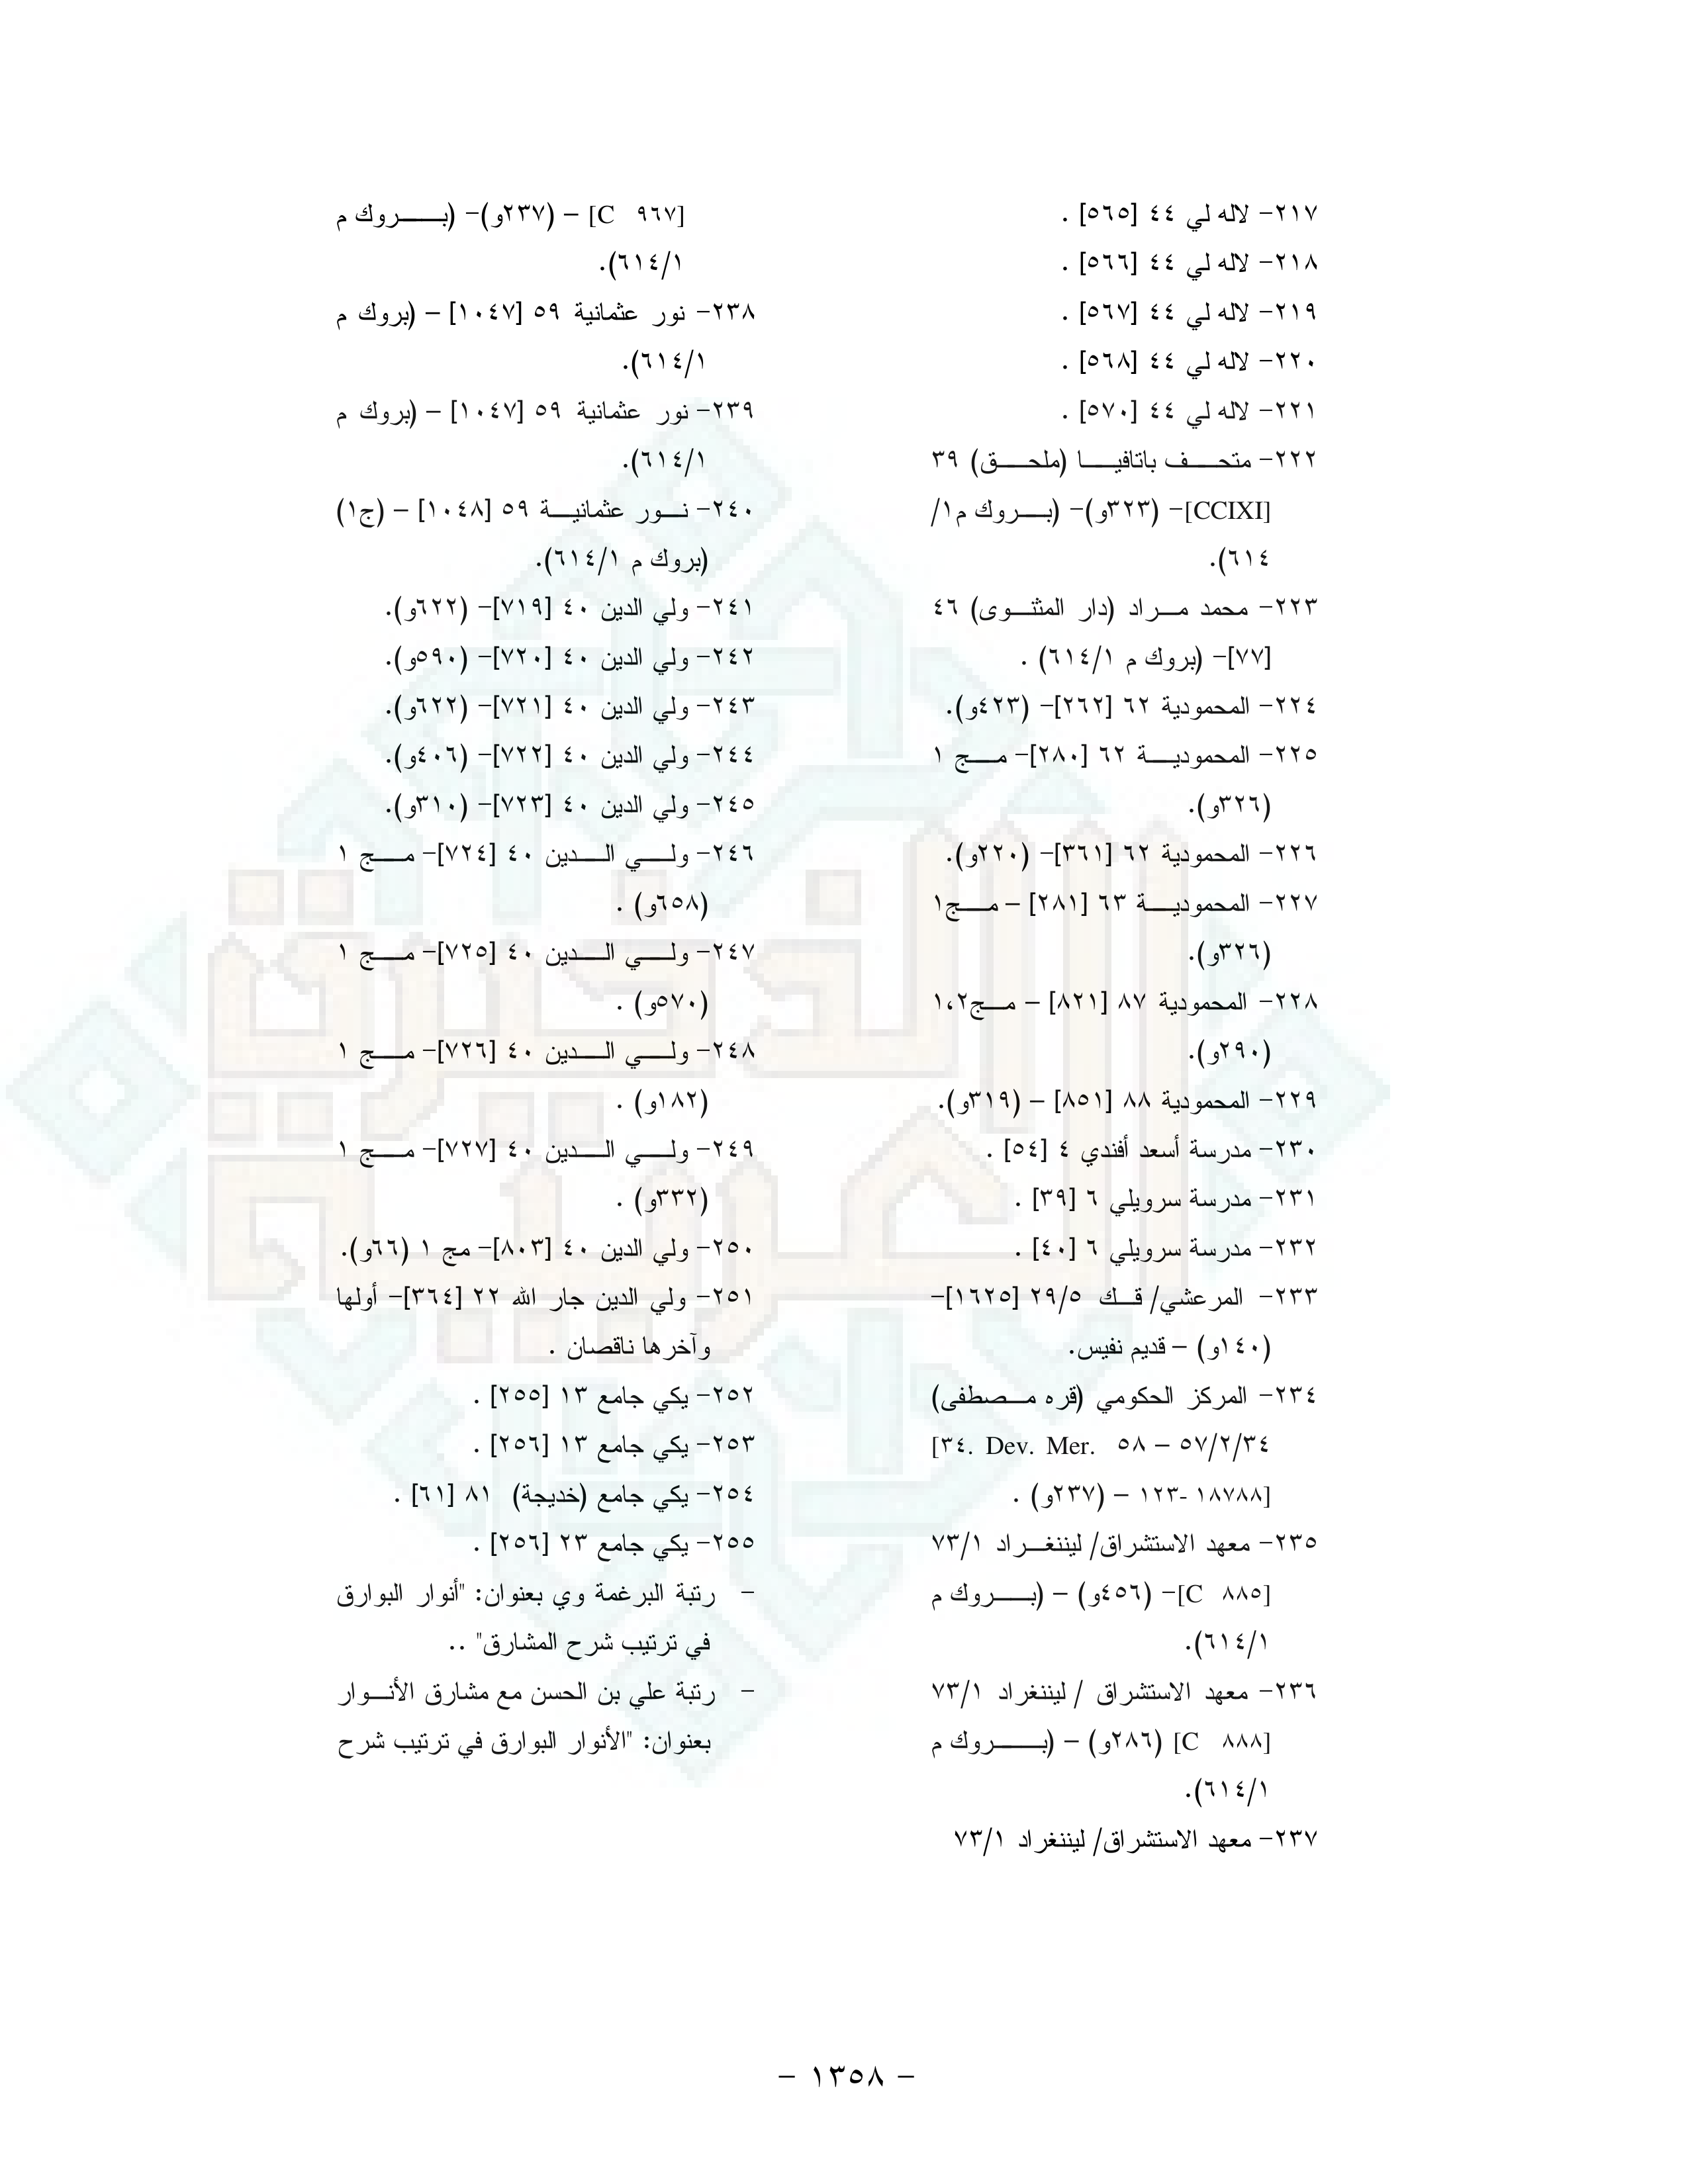 ٢١٧- لاله لي ٤٤ [٥٦٥] .
٢١٨- لاله لي ٤٤ [٥٦٦] .
٢١٩- لاله لي ٤٤ [٥٦٧] .
٢٢٠- لاله لي ٤٤ [٥٦٨] .
٢٢١- لاله لي ٤٤ [٥٧٠] .
٢٢٢- متحف باتافيا (ملحق) ٣٩
[CCIXI]- (٣٢٣و)- (بروك م١/
٦١٤).
٢٢٣- محمد مراد (دار المثنوى) ٤٦
[٧٧]- (بروك م ٦١٤/١) .
٢٢٤- المحمودية ٦٢ [٢٦٢]- (٤٢٣و).
٢٢٥- المحمودية ٦٢ [٢٨٠]- مج ١
(٣٢٦و).
٢٢٦- المحمودية ٦٢ [٣٦١]- (٢٢٠و).
٢٢٧- المحمودية ٦٣ [٢٨١] – مج١
(٣٢٦و).
٢٢٨- المحمودية ٨٧ [٨٢١] – مج١،٢
(٢٩٠و).
٢٢٩- المحمودية ٨٨ [٨٥١] – (٣١٩و).
٢٣٠- مدرسة أسعد أفندي ٤ [٥٤] .
٢٣١- مدرسة سرويلي ٦ [٣٩] .
٢٣٢- مدرسة سرويلي ٦ [٤٠] .
٢٣٣- المرعشي/ قك ٢٩/٥ [١٦٢٥]-
(١٤٠و) – قديم نفيس.
٢٣٤- المركز الحكومي (قره مصطفى)
٥٧/٢/٣٤ – ٥٨ [٣٤. Dev. Mer.
١٢٣- ١٨٧٨٨] – (٢٣٧و) .
٢٣٥- معهد الاستشراق/ ليننغراد ٧٣/١
[C ٨٨٥]- (٤٥٦و) – (بروك م
٦١٤/١).
٢٣٦- معهد الاستشراق / ليننغراد ٧٣/١
[C ٨٨٨] (٢٨٦و) – (بروك م
٦١٤/١).
٢٣٧- معهد الاستشراق/ ليننغراد ٧٣/١
[C ٩٦٧] – (٢٣٧و)- (بروك م
٦١٤/١).
٢٣٨- نور عثمانية ٥٩ [١٠٤٧] – (بروك م
٦١٤/١).
٢٣٩- نور عثمانية ٥٩ [١٠٤٧] – (بروك م
٦١٤/١).
٢٤٠- نور عثمانية ٥٩ [١٠٤٨] – (ج١)
(بروك م ٦١٤/١).
٢٤١- ولي الدين ٤٠ [٧١٩]- (٦٢٢و).
٢٤٢- ولي الدين ٤٠ [٧٢٠]- (٥٩٠و).
٢٤٣- ولي الدين ٤٠ [٧٢١]- (٦٢٢و).
٢٤٤- ولي الدين ٤٠ [٧٢٢]- (٤٠٦و).
٢٤٥- ولي الدين ٤٠ [٧٢٣]- (٣١٠و).
٢٤٦- ولي الدين ٤٠ [٧٢٤]- مج ١
(٦٥٨و) .
٢٤٧- ولي الدين ٤٠ [٧٢٥]- مج ١
(٥٧٠و) .
٢٤٨- ولي الدين ٤٠ [٧٢٦]- مج ١
(١٨٢و) .
٢٤٩- ولي الدين ٤٠ [٧٢٧]- مج ١
(٣٣٢و) .
٢٥٠- ولي الدين ٤٠ [٨٠٣]- مج ١ (٦٦و).
٢٥١- ولي الدين جار الله ٢٢ [٣٦٤]- أولها
وآخرها ناقصان .
٢٥٢- يكي جامع ١٣ [٢٥٥] .
٢٥٣- يكي جامع ١٣ [٢٥٦] .
٢٥٤- يكي جامع (خديجة) ٨١ [٦١] .
٢٥٥- يكي جامع ٢٣ [٢٥٦] .
- رتبة البرغمة وي بعنوان: "أنوار البوارق
في ترتيب شرح المشارق" ..
- رتبة علي بن الحسن مع مشارق الأنوار
بعنوان: "الأنوار البوارق في ترتيب شرح
- ١٣٥٨ -
الذخيرة
العربية